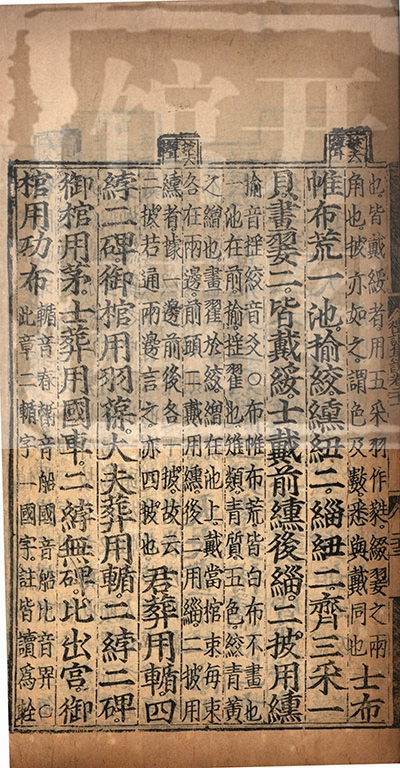 也皆戴綏者用五采羽作蕤綴翣之兩
角也披亦如之謂色及數悉與戴同也
士布
帷布荒一池揄絞纁紐二緇紐二齊三采一
貝畫翣二皆戴綏士戴前纁後緇二披用纁
揄音揺絞音爻○布帷布荒皆白布不畫也
一池在前揄揺翟也雉類青質五色絞青黃
之繒也畫翟於絞繒在池上戴當棺束每束
各在兩邊前頭二戴用纁後二用緇二披用
纁者據一邊前後各一披故云
二披若通兩邊言之亦四披也
君葬用輴四
綍二碑御棺用羽葆大夫葬用輴二綍二碑
御棺用茅士葬用國車二綍無碑比出宮御
棺用功布
輴音春音船國音船比音畀○
此章二輴字一國字註皆讀爲輇